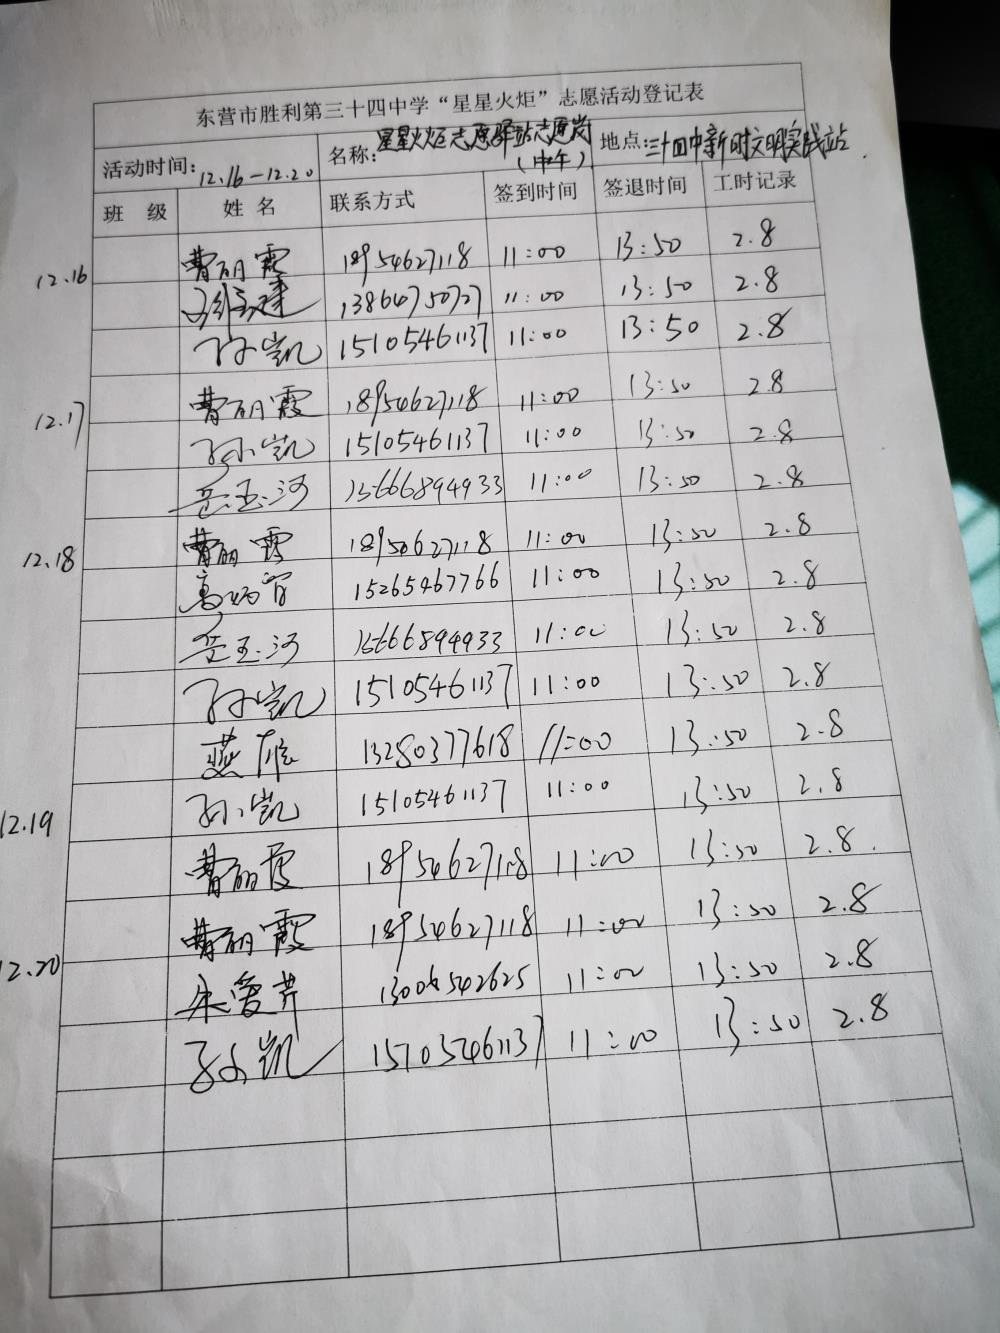 东营市胜利第三十四中学“星星火炬”志愿活动登记表
活动时间：12.16—12.20 名称：星星火炬志愿驿站志愿岗（中午） 地点：三十四中新时代文明实践站
班 级 姓 名 联系方式 签到时间 签退时间 工时记录
12.16 曹丽霞 18954627118 11:00 13:50 2.8
13864750727 11:00 13:50 2.8
孙凯 15105461137 11:00 13:50 2.8
12.17 曹丽霞 18954627118 11:00 13:50 2.8
孙凯 15105461137 11:00 13:50 2.8
岳玉河 15666894933 11:00 13:50 2.8
12.18 曹丽霞 18950627118 11:00 13:50 2.8
高炳官 15265467766 11:00 13:50 2.8
岳玉河 15666894933 11:00 13:50 2.8
孙凯 15105461137 11:00 13:50 2.8
燕雄 13280377618 11:00 13:50 2.8
12.19 孙凯 15105461137 11:00 13:50 2.8
曹丽霞 18954627118 11:00 13:50 2.8.
12.20 曹丽霞 18954627118 11:00 13:50 2.8
朱爱芹 13006542625 11:00 13:50 2.8
孙凯 15105461137 11:00 13:50 2.8